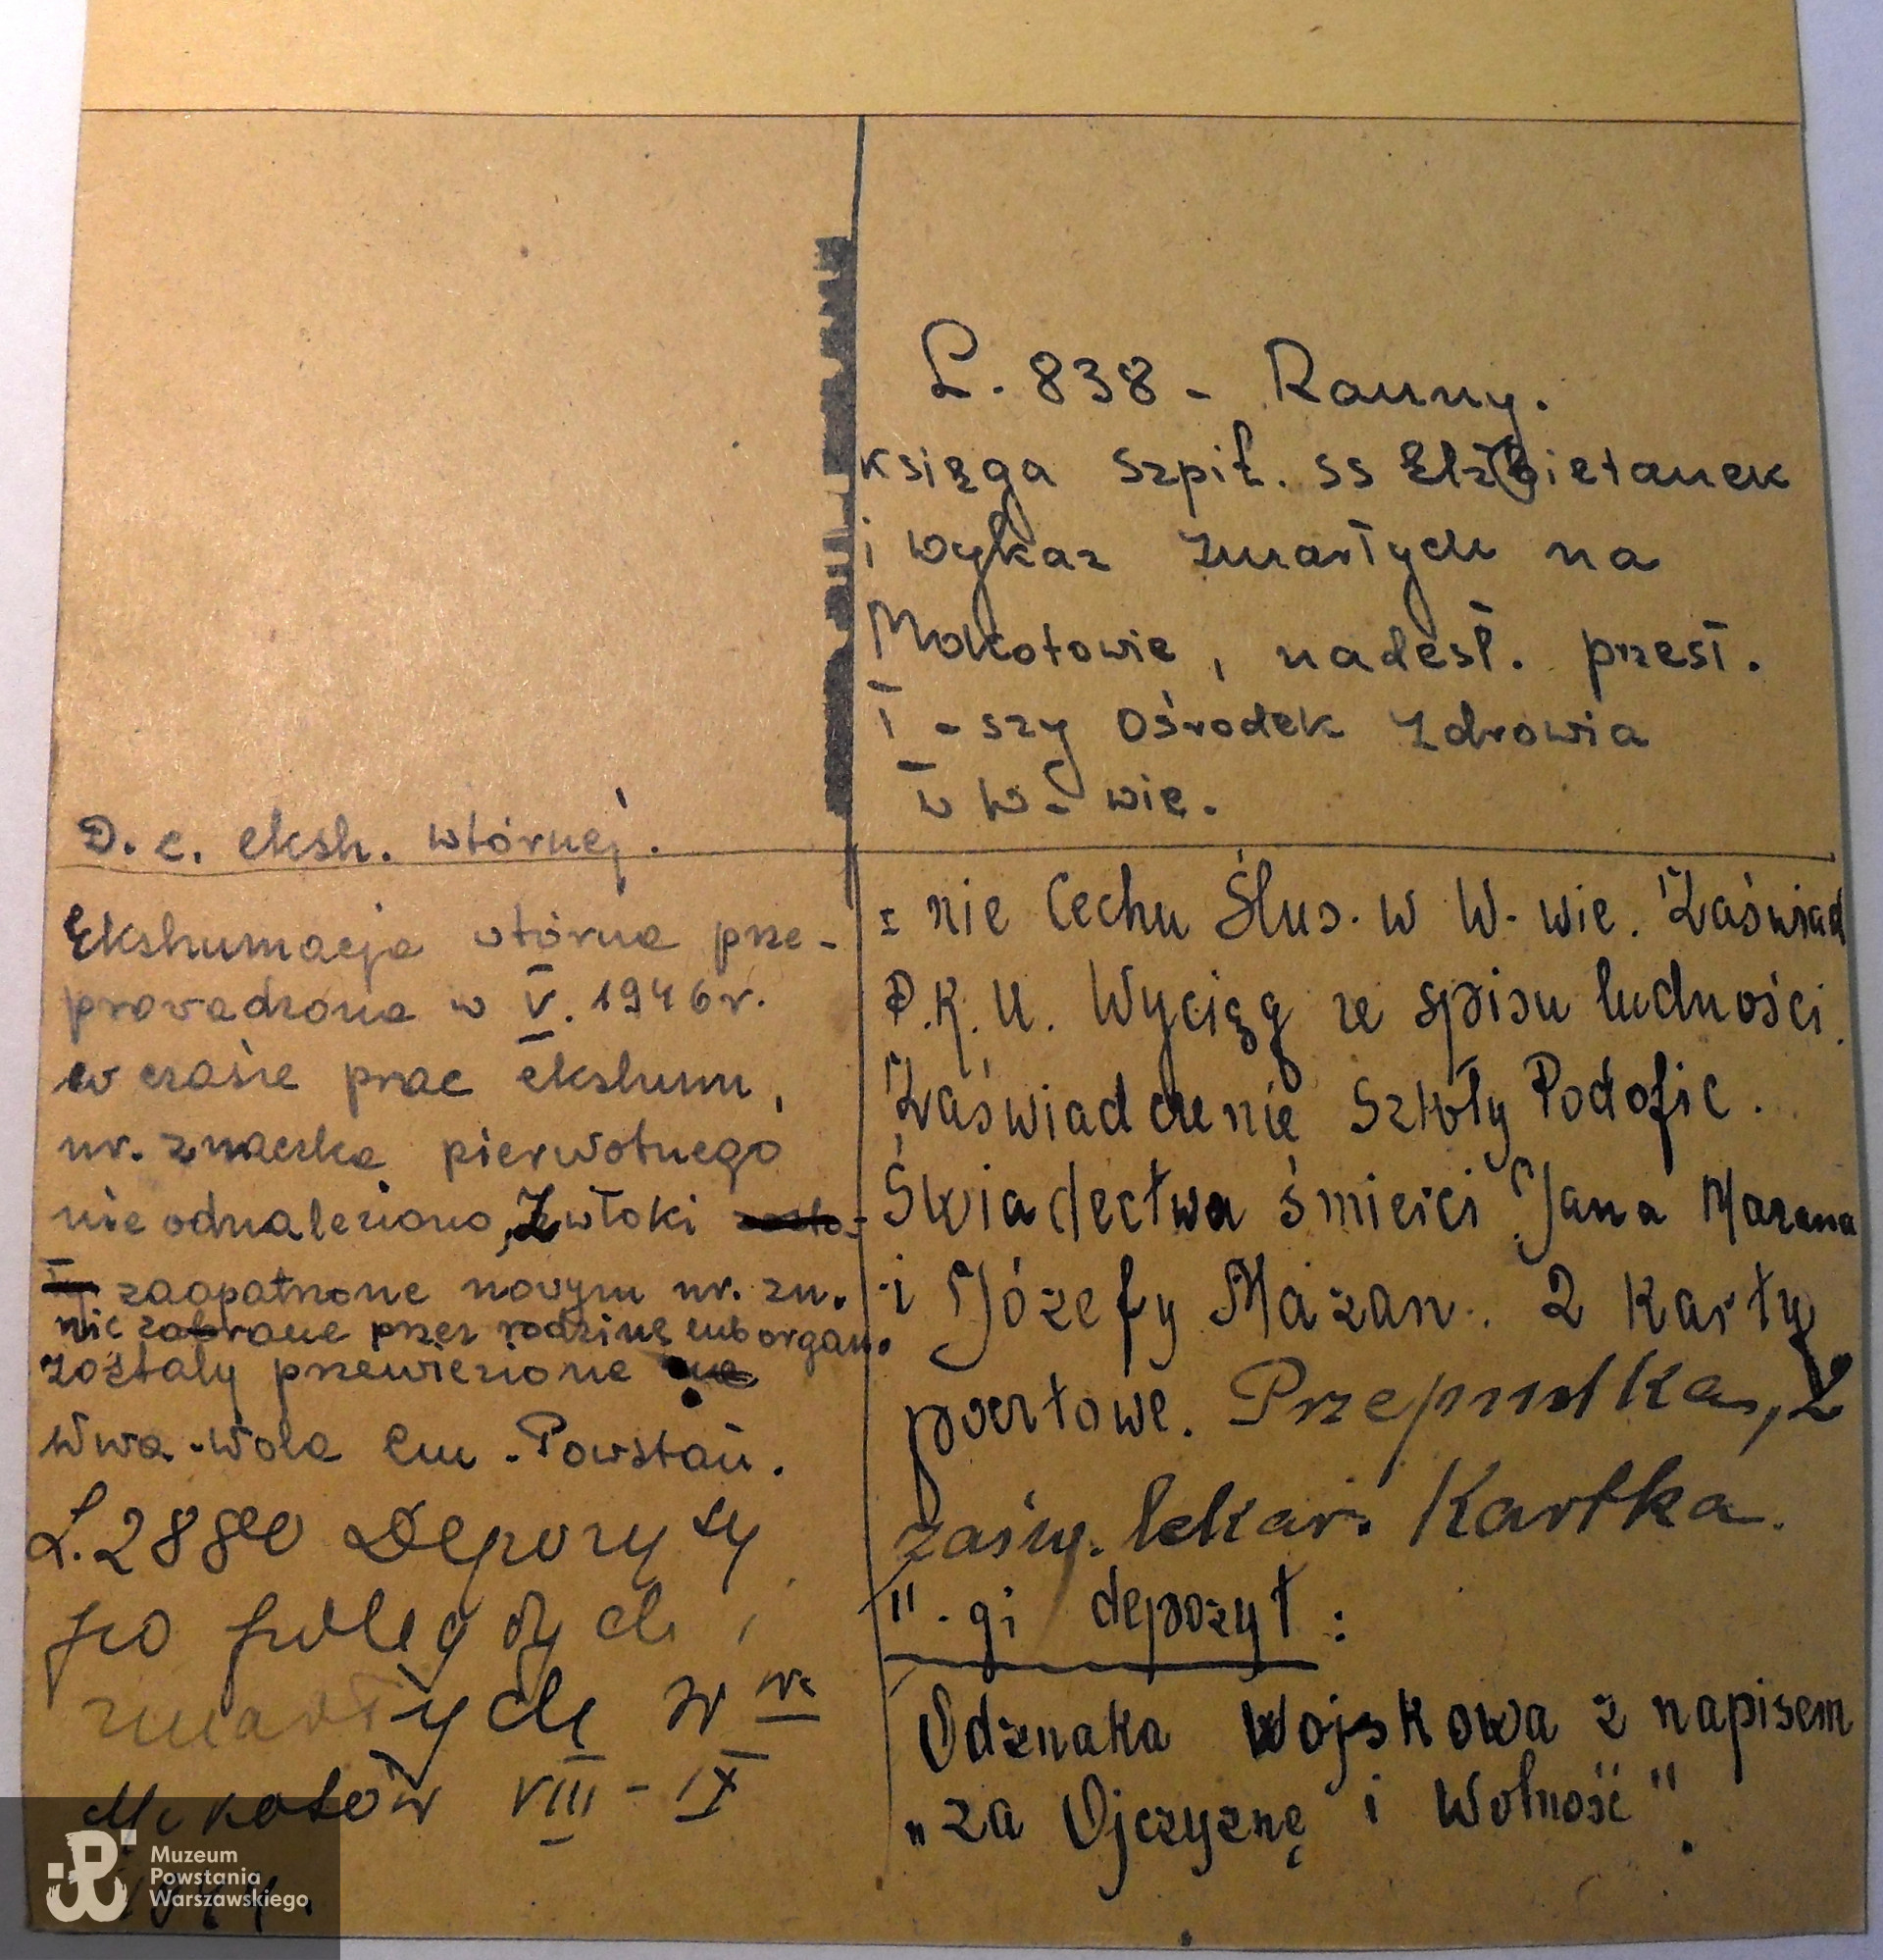 L. 838 - Ranny.
księga szpit. ss Elżbietanek
i wykaz zmarłych na
Mokotowie, nadesł. przesł.
I - szy Ośrodek Zdrowia
w W- wie.
D. c. eksh. wtórnej.
Ekshumacja wtórna prze-
prowadzona w V. 1946 r.
w czasie prac ekshum,
nr. znaczka pierwotnego
nie odnaleziono, Zwłoki
zaopatrzone novym nr. zn.
nie zabrane przez rodzinę lub organ.
zostały przewiezione na
Wwa-Wola Cm. Powstań.
L. 2880 Depozyty
po poległych i
zmarłych w
Mokotów VIII - IX
1944.
= nie Cechu Ślus. w W- wie. Zaświad
P.K.U. Wyciąg ze spisu ludności.
Zaświadczenie Szkoły Podofic.
Świadectwa śmierci Jana Mazana
i Józefy Mazan. 2 Karty
pocztowe. Przepustka, 2
zaśw. lekar. Kartka.
II - gi depozyt :
Odznaka Wojskowa z napisem
„za Ojczyznę i Wolność".
Muzeum
Powstania
Warszawskiego